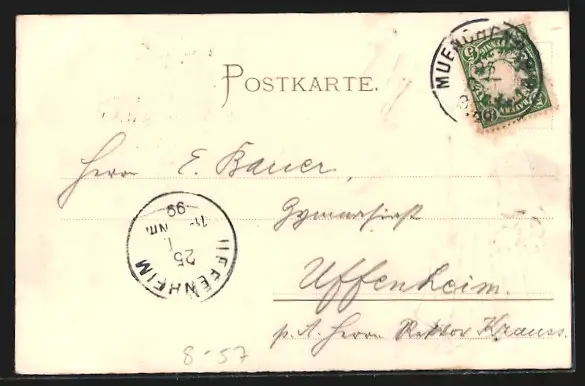 POSTKARTE.
MUENCHEN
BAYERN
Herrn E. Bauer,
Gymnasiast
Uffenheim.
p. A. Herrn Rektor Krauss.
UFFENHEIM
25
I.
99
Nm.
8-57